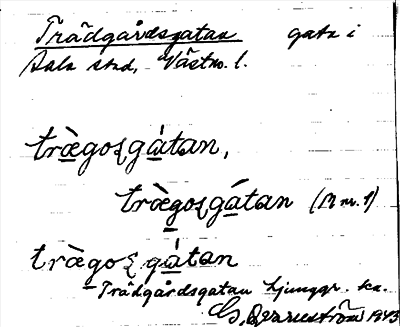 Trädgårdsgatan gata i
Sala stad, Västm. l.
træ̀goʂgátan,
træ̀goʂgátan (M nr. 1)
træ̀goʂ gátan
– Trädgårdsgatan Ljunggr. ka.
1943